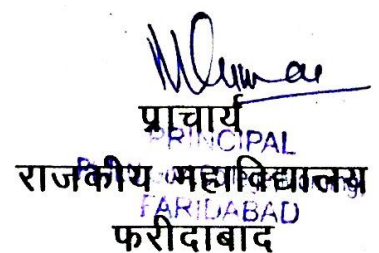 प्राचार्य
PRINCIPAL
राजकीय महाविद्यालय
FARIDABAD
फरीदाबाद